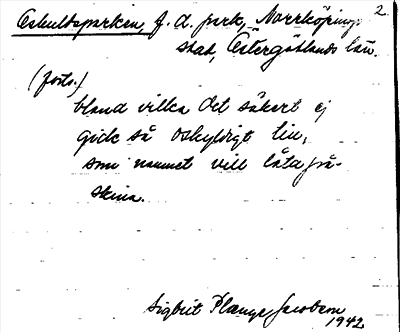 Oskuldsparken, f. d. park, Norrköpings 2
stad, Östergötlands län.
(forts.)
bland vilka det säkert ej
gick så oskyldigt till,
som namnet vill låta på-
skina.
Sigbrit Plænge Jacobson
1942